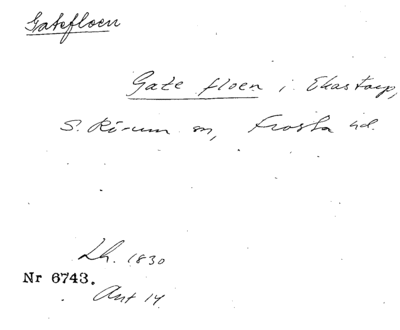 Gatefloen
Gate floen i Ekastorp,
S. Rörum sn, Frosta hd.
Lh. 1830
Nr 6743.
Akt 14